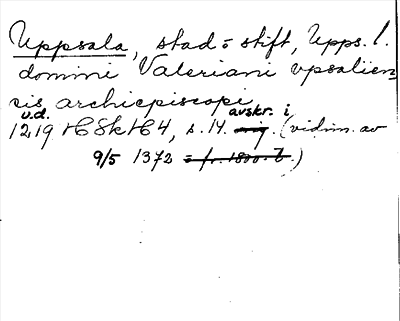 Uppsala, stad o stift, Upps. l.
domini Valeriani upsalien
sis archiepiscopi
u.d. avskr. i
1219 HSH4, s. 14. orig. (vidim. av
9/5 1372 = fr. 1800. b.)